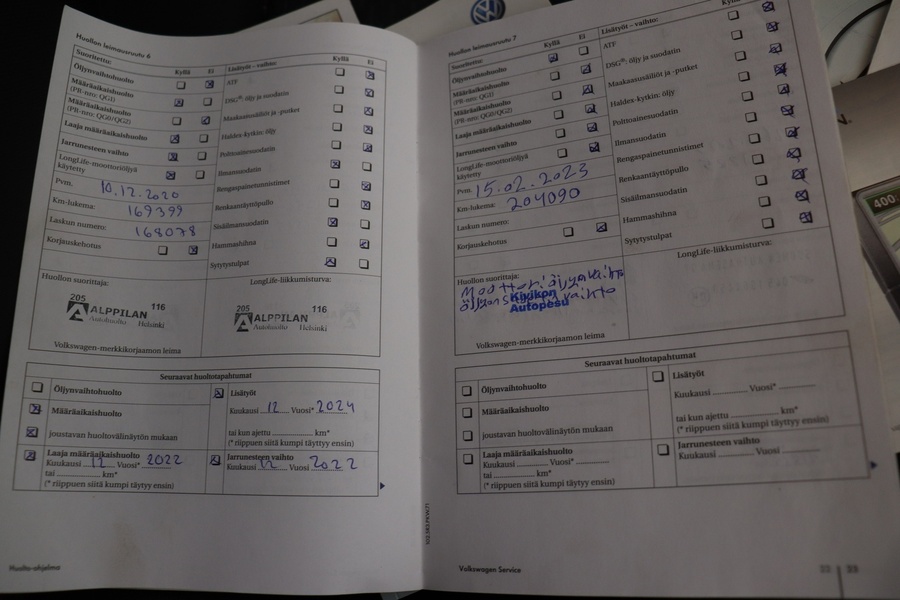 Huollon leimausruutu 6
Suoritettu: Kyllä Ei
Öljynvaihtohuolto
Määräaikaishuolto
(PR-nro: QG1)
Määräaikaishuolto
(PR-nro: QG0/QG2)
Laaja määräaikaishuolto
Jarrunesteen vaihto
LongLife-moottoriöljyä
käytetty
Pvm. 10.12.2020
Km-lukema: 169399
Laskun numero: 168078
Korjauskehotus
Lisätyöt – vaihto: Kyllä Ei
ATF
DSG®: öljy ja suodatin
Maakaasusäiliöt ja -putket
Haldex-kytkin: öljy
Polttoainesuodatin
Ilmansuodatin
Rengaspainetunnistimet
Renkaantäyttöpullo
Sisäilmansuodatin
Hammashihna
Sytytystulpat
Huollon suorittaja:
205 116
ALPPILAN
Autohuolto Helsinki
Volkswagen-merkkikorjaamon leima
LongLife-liikkumisturva:
205 116
ALPPILAN
Autohuolto Helsinki
Seuraavat huoltotapahtumat
Öljynvaihtohuolto
Määräaikaishuolto
joustavan huoltovälinäytön mukaan
Laaja määräaikaishuolto
Kuukausi 12 Vuosi* 2022
tai km*
(* riippuen siitä kumpi täytyy ensin)
Lisätyöt
Kuukausi 12 Vuosi* 2024
tai kun ajettu km*
(* riippuen siitä kumpi täytyy ensin)
Jarrunesteen vaihto
Kuukausi 12 Vuosi 2022
Huolto-ohjelma
Huollon leimausruutu 7
Suoritettu: Kyllä Ei
Öljynvaihtohuolto
Määräaikaishuolto
(PR-nro: QG1)
Määräaikaishuolto
(PR-nro: QG0/QG2)
Laaja määräaikaishuolto
Jarrunesteen vaihto
LongLife-moottoriöljyä
käytetty
Pvm. 15.02.2023
Km-lukema: 204090
Laskun numero:
Korjauskehotus
Lisätyöt – vaihto:
ATF
DSG®: öljy ja suodatin
Maakaasusäiliöt ja -putket
Haldex-kytkin: öljy
Polttoainesuodatin
Ilmansuodatin
Rengaspainetunnistimet
Renkaantäyttöpullo
Sisäilmansuodatin
Hammashihna
Sytytystulpat
Huollon suorittaja:
Moottoriöljynvaihto
vaihto
Kivikon
Autopesu
Volkswagen-merkkikorjaamon leima
LongLife-liikkumisturva:
Seuraavat huoltotapahtumat
Öljynvaihtohuolto
Määräaikaishuolto
joustavan huoltovälinäytön mukaan
Laaja määräaikaishuolto
Kuukausi Vuosi*
tai km*
(* riippuen siitä kumpi täytyy ensin)
Lisätyöt
Kuukausi Vuosi*
tai kun ajettu km*
(* riippuen siitä kumpi täytyy ensin)
Jarrunesteen vaihto
Kuukausi Vuosi
Volkswagen Service
22 23
400: